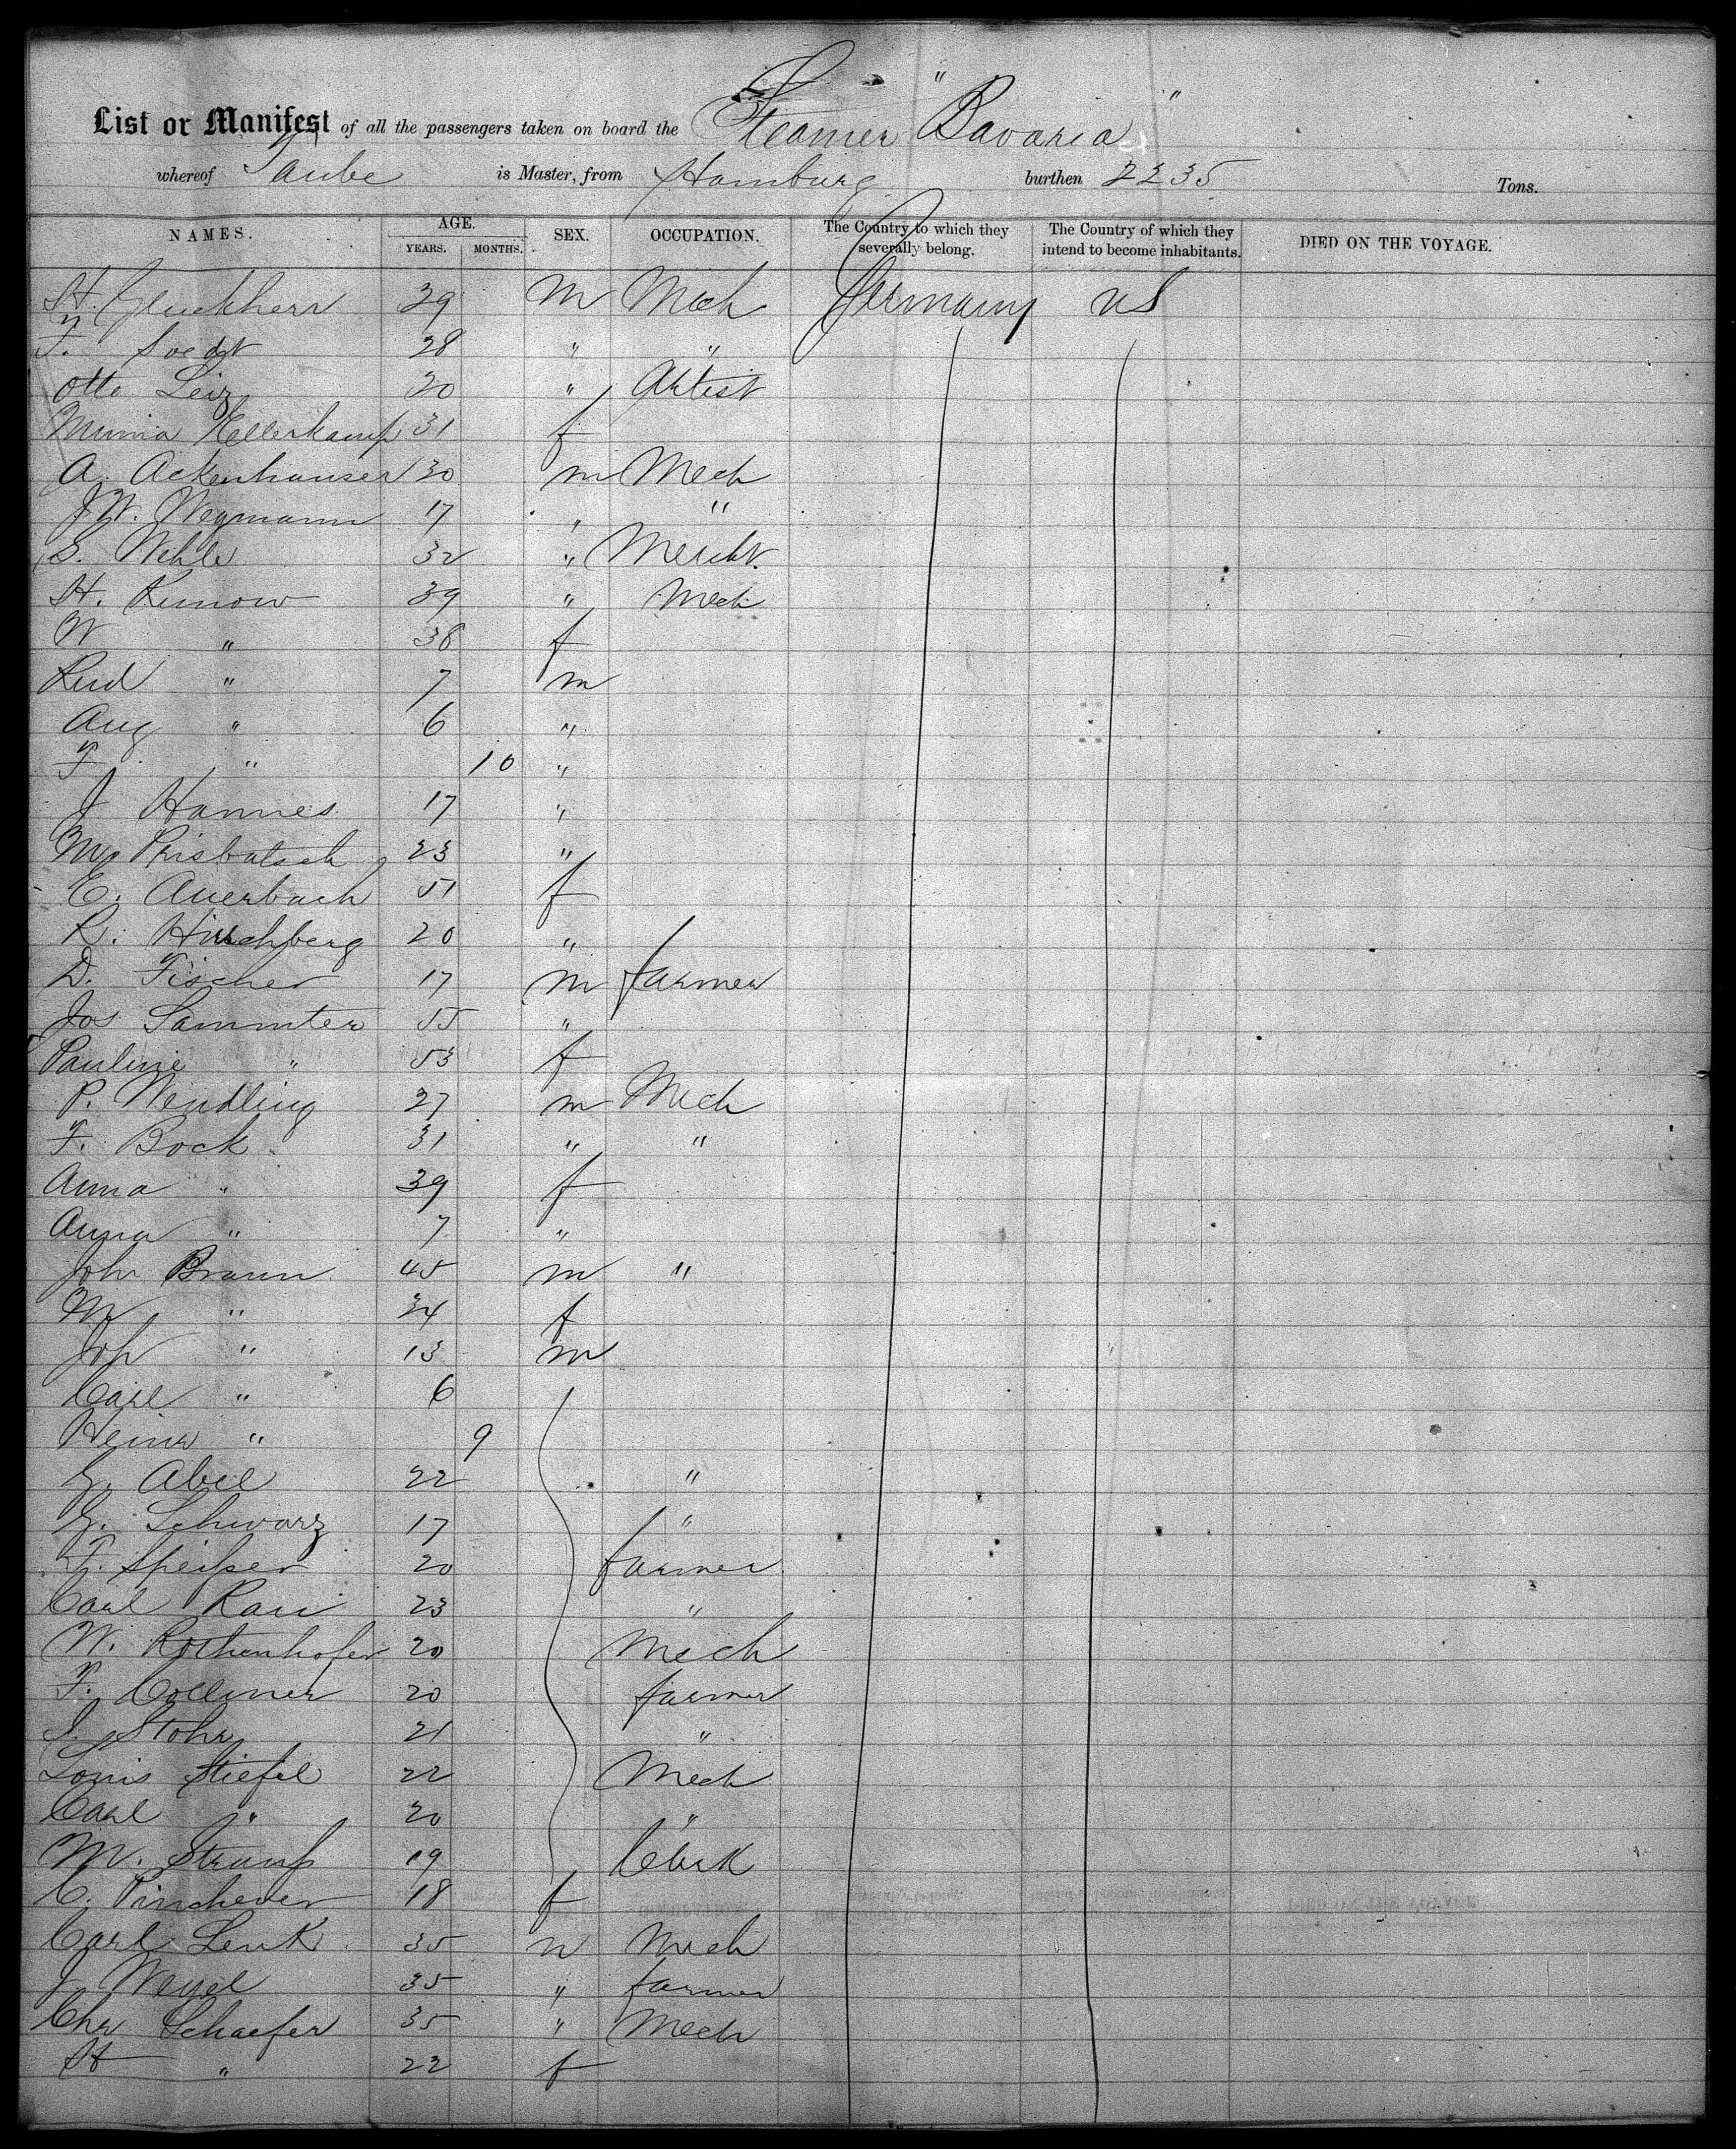 List or Manifest of all the passengers taken on board the Steamer "Bavaria"
whereof Taube is Master, from Hamburg burthen 2235 Tons.
NAMES. AGE. YEARS. MONTHS. SEX. OCCUPATION. The Country to which they severally belong. The Country of which they intend to become inhabitants. DIED ON THE VOYAGE.
H. Gluckherr 39 m Mech Germany US
F. 28 " "
Otto 20 " Artist
Minna Hellerkamp 31 f
A. Ackenhauser 30 m Mech
J.W. Wegmann 17 " "
S. Wehle 32 " Mercht.
H. Kunow 39 " Mech
W " 38 f
Rud " 7 m
Aug " 6 "
F " 10 "
J Hannes 17 "
M. 23 "
E. Auerbach 51 f
R. Hirschberg 20 "
D. Fischer 17 m farmer
Jos Sammter 55 "
Pauline " 53 f
P. Wendling 27 m Mech
F. Bock 31 " "
Anna " 39 f
Anna " 7 "
Joh Braun 45 m "
M " 34 f
Joh " 13 m
Carl " 6
Heinr " 9
G. Abel 22 "
G. Schwarz 17 "
F. Speißer 20 farmer
Carl Rau 23 "
W. Rothenhofer 20 Mech
F. Collmer 20 farmer
J. Stohr 21 "
Louis Stiefel 22 Mech
Carl " 20 "
M. Strauß 19 Clerk
C. 18 f
Carl Lenk 35 m Mech
J Weyel 35 " farmer
Chr Schaefer 35 " Mech
H " 22 f